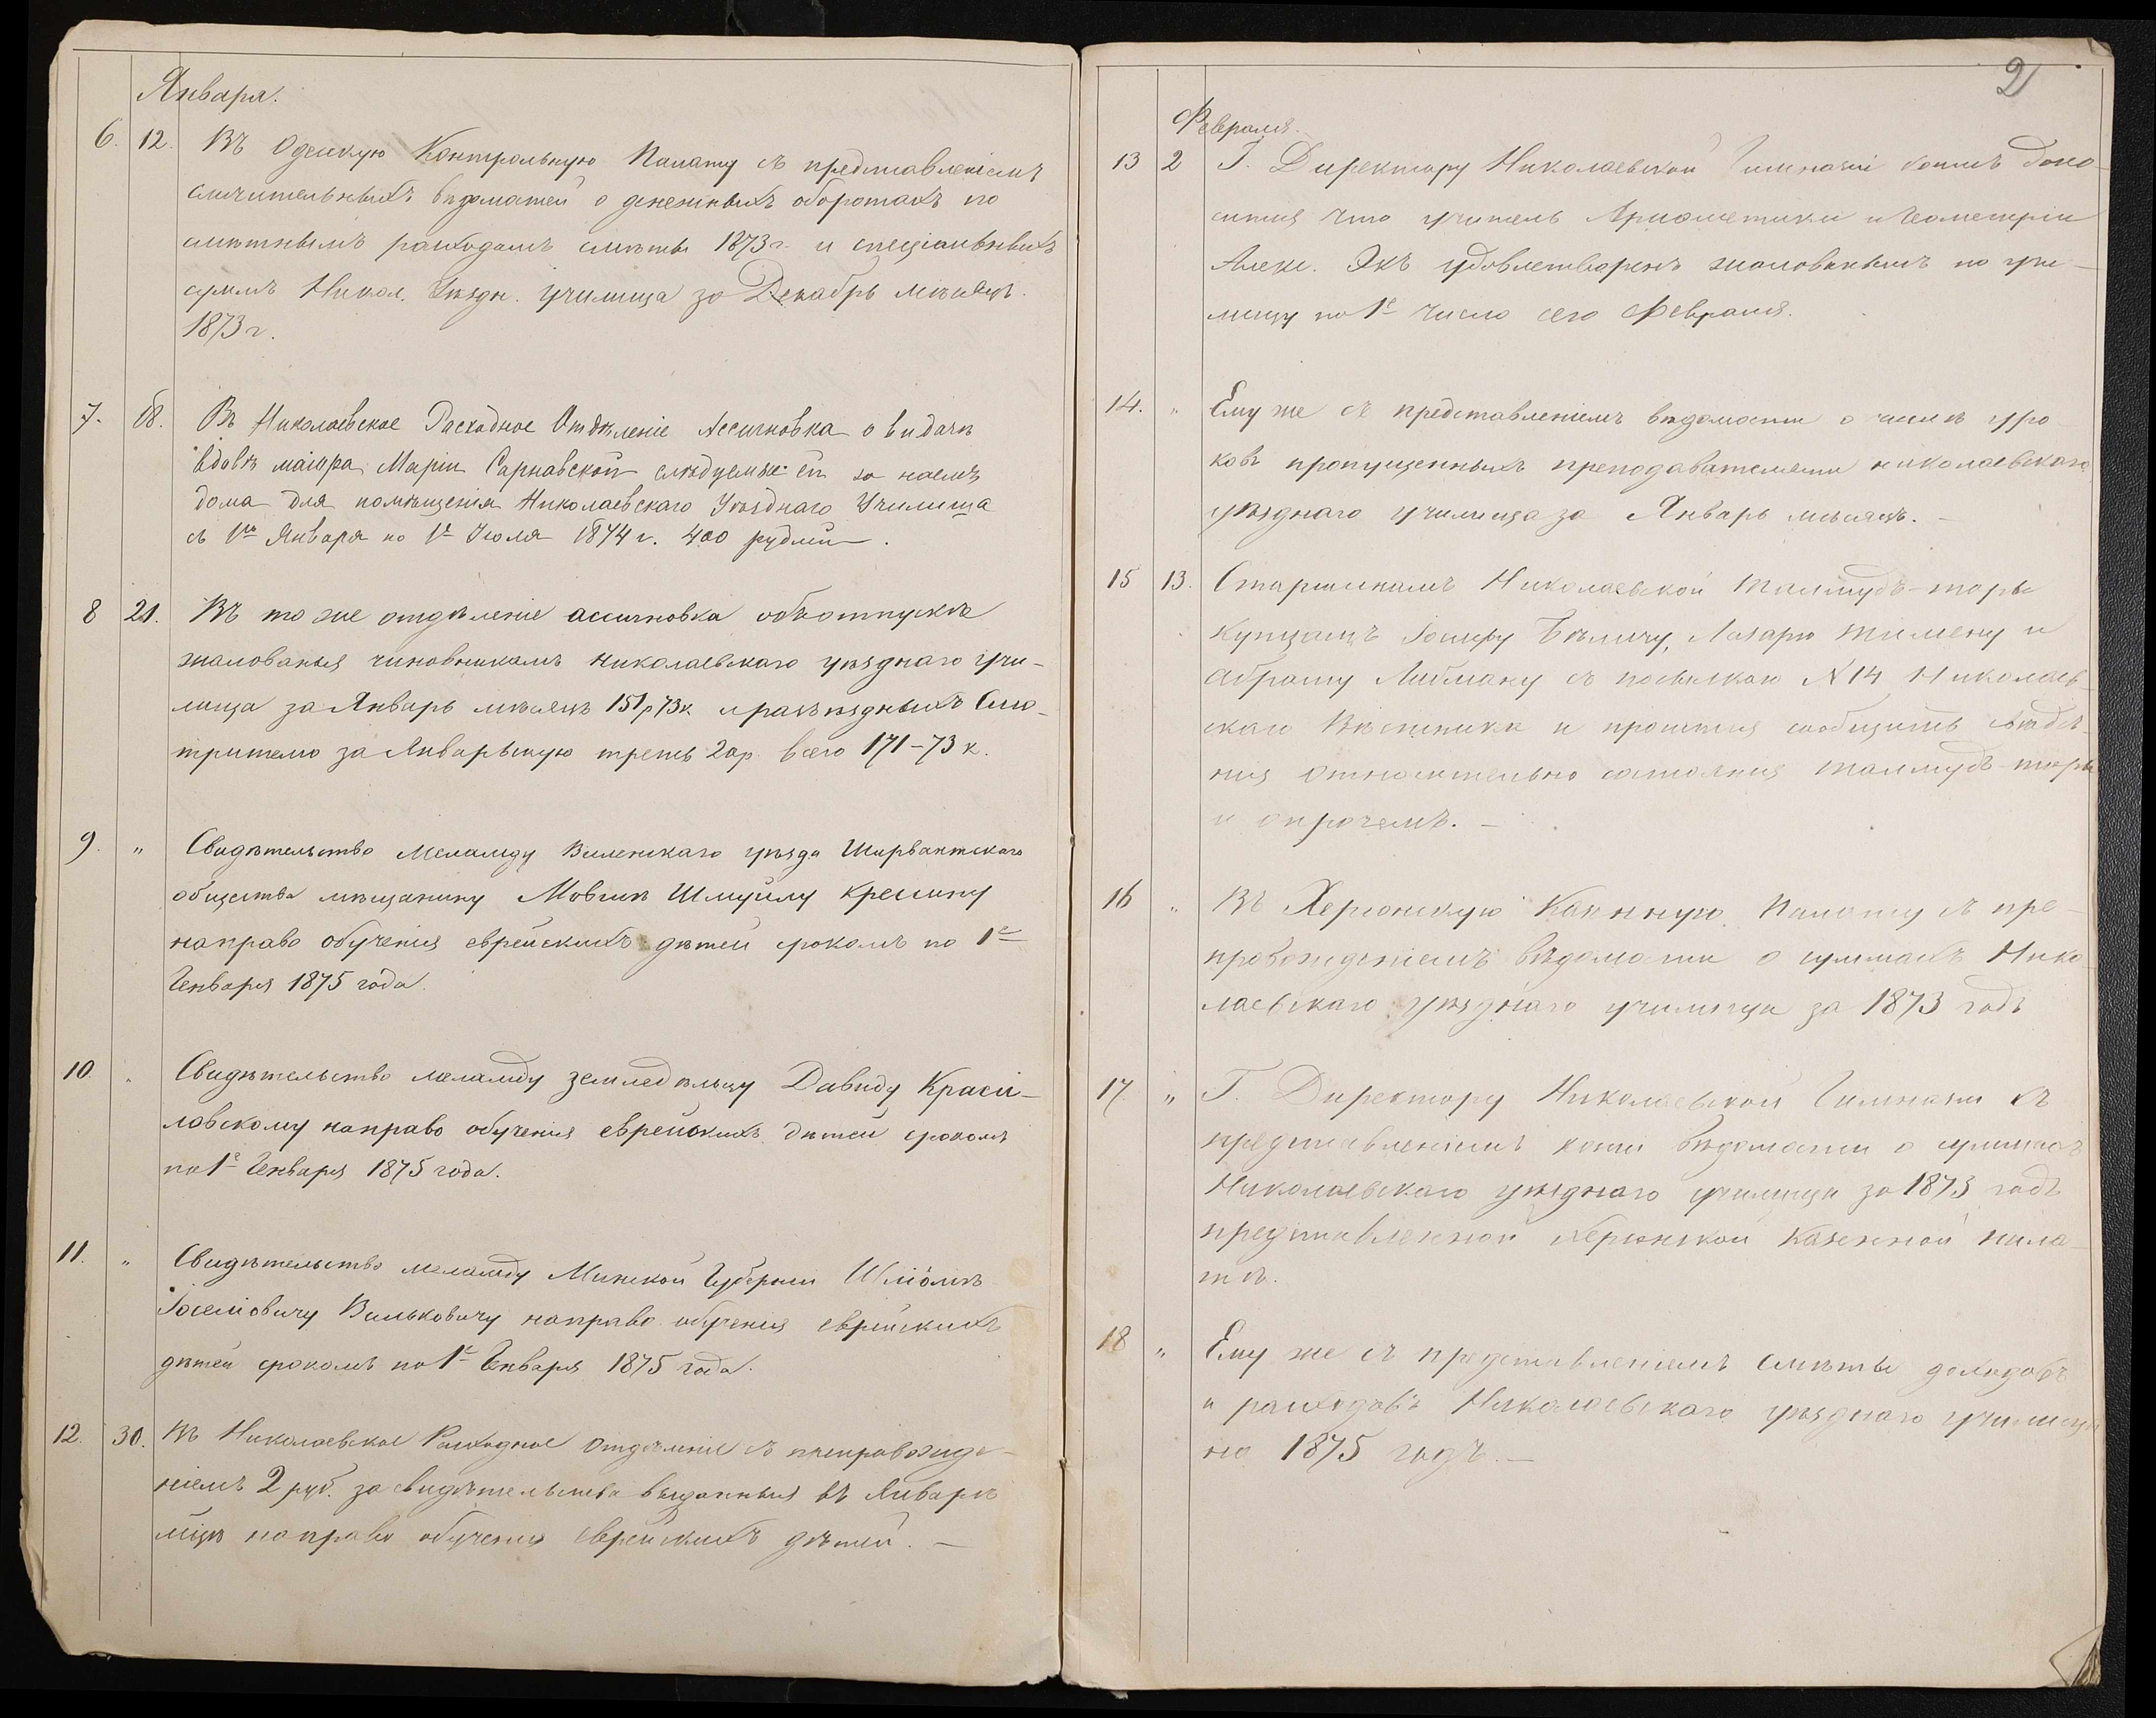 Января.
6. 12. Въ Одесскую Контрольную Палату съ представленіемъ
сличительныхъ вѣдомостей о денежныхъ оборотахъ по
смѣтнымъ расходамъ смѣты 1873 г. и спеціальныхъ
суммъ Никол. Уѣздн. училища за Декабрь мѣсяцъ.
1873 г.
7. 18. Въ Николаевское Расходное Отдѣленіе Ассигновка о видачѣ
вдовѣ маіора Маріи Сарнавской слѣдуемые ей за наемъ
дома для помѣщенія Николаевскаго Уѣзднаго Училища
съ 1го Января по 1е Іюля 1874 г. 400 рублей.
8 21. Въ то же отдѣленіе ассигновка объ отпускѣ
жалованья чиновникамъ николаевскаго уѣзднаго учи-
лища за Январь мѣсяцъ 151 р 73 к. и разъѣздныхъ Смо-
трителю за Январьскую треть 20 р. всего 171-73 к.
9. " Свидѣтельство Меламду Виленскаго уѣзда Ширвантскаго
общества мѣщанину Мовшѣ Шмуйлу Кресину
на право обученія еврейскихъ дѣтей срокомъ по 1е
Генваря 1875 года.
10 " Свидѣтельство меламду земледѣльцу Давиду Краси-
ловскому на право обученія еврейскихъ дѣтей срокомъ
по 1е Генваря 1875 года.
11. " Свидѣтельство меламду Минской Губерніи Шліомѣ
Іоселіовичу Вильковичу на право обученія еврейскихъ
дѣтей срокомъ по 1е Генваря 1875 года.
12. 30. Въ Николаевское Расходное Отдѣленіе съ препровожде-
ніемъ 2 руб. за свидѣтельства выданныя въ Январѣ
мцѣ на право обученія еврейскихъ дѣтей. —
2
Февраля.
13 2 Г. Директору Николаевской Гимназіи донос-
ится что учитель Ариѳметики и Геометріи
Алекс. Экъ удовлетворенъ жалованьемъ по учи-
лищу по 1е число сего Февраля.
14. " Ему же съ представленіемъ вѣдомости о числѣ уро-
ковъ пропущенныхъ преподавателями николаевскаго
уѣзднаго училища за Январь мѣсяцъ. —
15 13. Старшинамъ Николаевской талмудъ-торы
купцамъ Іосифу Бѣличу, Лазарю и
Абраму Либману съ посылкою №14 Николаев-
скаго Вѣстника и просится сообщить свѣдѣ-
нія относительно состоянія талмудъ-торы
и о прочемъ. —
16 " Въ Херсонскую Казенную Палату съ пре-
провожденіемъ вѣдомости о суммахъ Нико-
лаевскаго уѣзднаго училища за 1873 годъ
17. " Г. Директору Николаевской Гимназіи съ
представленіемъ копіи вѣдомости о суммахъ
Николаевскаго уѣзднаго училища за 1873 годъ
представленной Херсонской Казенной пала-
тѣ.
18 " Ему же съ представленіемъ смѣты доходовъ
и расходовъ Николаевскаго уѣзднаго училища
на 1875 годъ. —